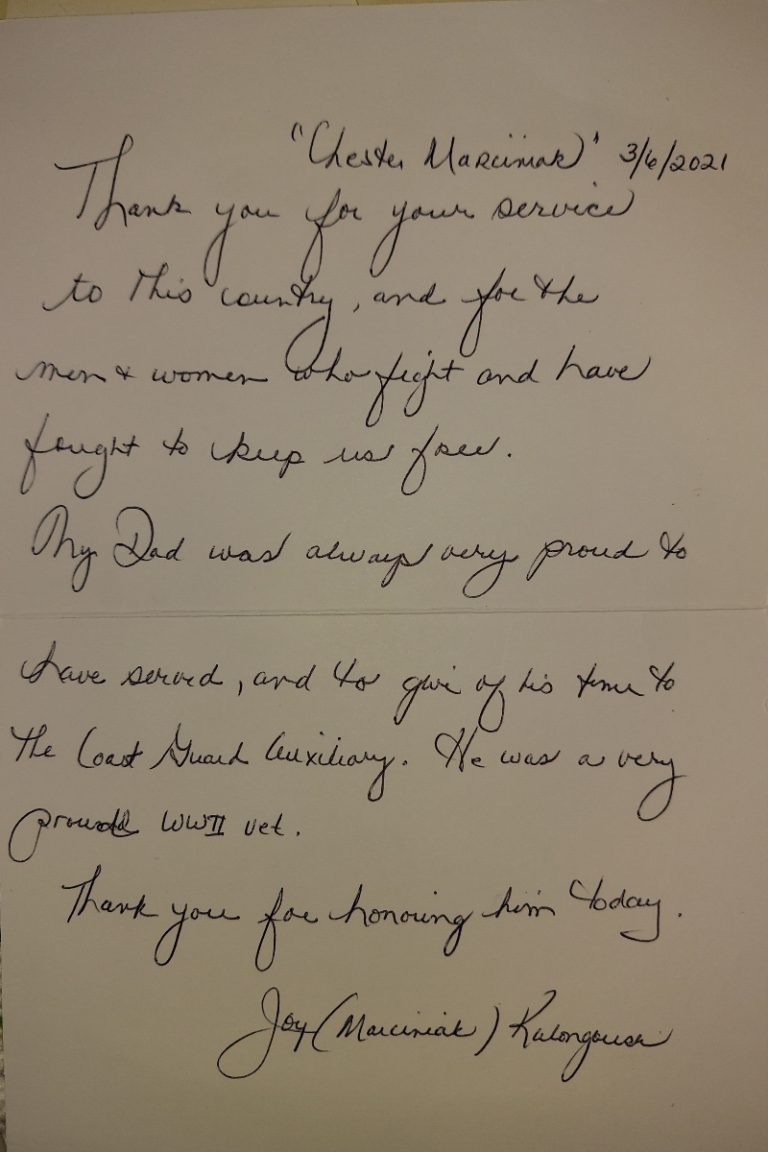 "Chester Marciniak" 3/6/2021
Thank you for your service
to this country, and for the
men & women who fight and have
fought to keep us free.
My Dad was always very proud to
have served, and to give of his time to
the Coast Guard Auxiliary. He was a very
proud WWII vet.
Thank you for honoring him today.
Joy (Marciniak)